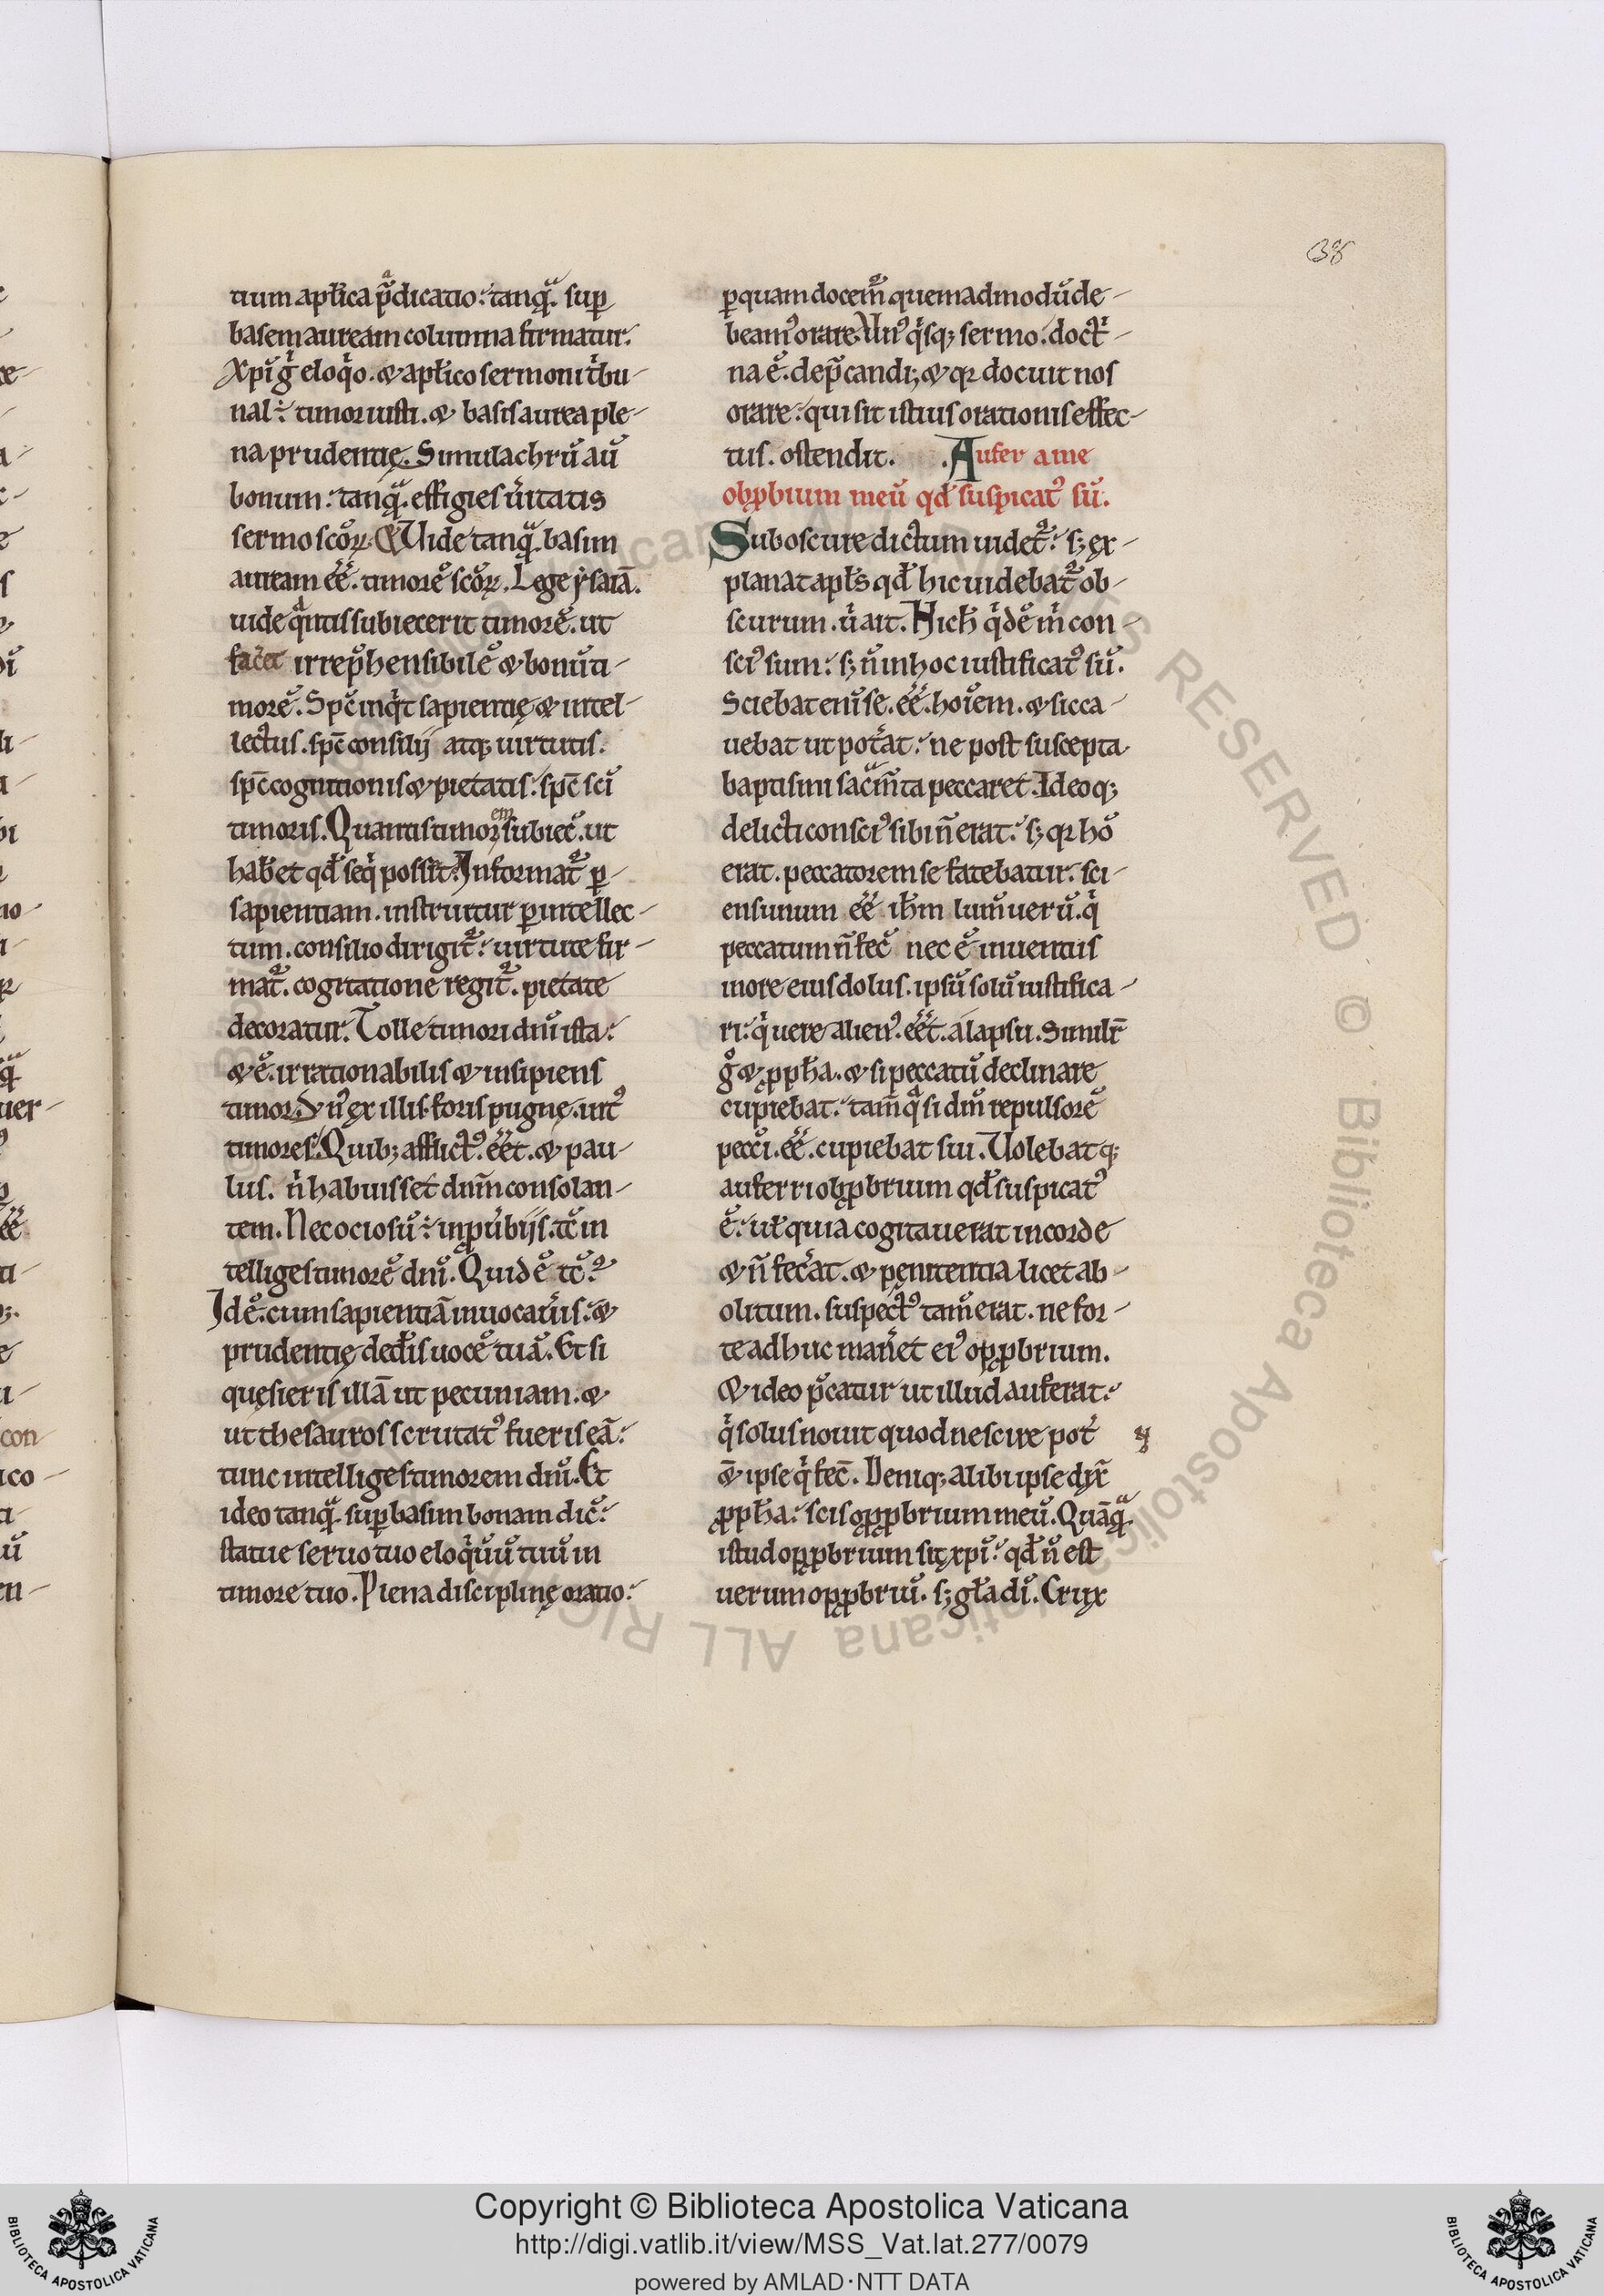 38
tium apl̄ica p̄dicatio. tanq̄. sup̱
basem auream columna firmatur.
Xp̄i ḡ eloq̊o. & apl̄ico sermoni t̊bu-
nal ÷ timor iusti. & basis aurea ple-
na prudentię. Simulachrū aū
bonum. tanq̄. effigies ūitatis
sermo scōꝝ. & Uide tanq̄. basim
auream eē. timorē scōꝝ. Lege ysaiā.
uide q̄ntis subiecerit timorē. ut
facēt irrep̄hensibilē & bonū ti-
morē. Sp̄c inq̊t sapientię & intel-
lectus. sp̄c consilij atq; uirtutis.
sp̄c cognitionis & pietatis. sp̄c sc̄i
timoris. Quantis timorem subiec̄. ut
hab̄et qd̄ seq̊ possit. Informat᷑ p̱
sapientiam. instruitur p̱ intellec-
tum. consilio dirigit᷑. uirtute fir-
mat᷑. cogitatione regit᷑. pietate
decoratur. Tolle timori dn̄i ista.
& ē. irrationabilis & insipiens
timor. ex illis. foris pugnę. int᷒
timores. Quib; afflict᷒. eēt. & pau-
lus. n̊ habuisset dn̄m consolan-
tem. Nec ociosū ÷ in ꝓūbijs. tc̄ in
telliges timorē dn̄i. Quid ē tc̄.
Id ē. cum sapientiā inuocaūis. &
prudentię ded̄is uocē tuā. Et si
quęsieris illā ut pecuniam. &
ut thesauros scrutat᷒ fueris eā.
tunc intelliges timorem dn̄i. Et
ideo tanq̄. sup̱ basim bonam dic̄.
statue seruo tuo eloq̊ū tuū in
timore tuo. Plena disciplinę oratio.
p̱ quam docem̄ quemadmodū de-
beam᷒ orare. Un᷒ q̊sq; sermo. doct̊-
na ē. dep̄candi; & qꝛ docuit nos
orare. qui sit istius orationis effec-
tus. ostendit. Aufer a me
obꝓbrium meū qd̄ suspicat᷒ sū.
Suboscure dictum uidet᷑. s; ex-
planat apl̄s qd̄ hic uidebat᷑ ob-
scurum. ū ait. Nich̄ q̊dē m̊ con-
sci᷒ sum. s; n̄ in hoc iustificat᷒ sū.
Sciebat enī se. eē. hoīem. & sic ca-
uebat ut pot̄at. ne post suscepta
baptismi sac̄m̄ta peccaret. Ideoq;
delicti consci᷒ sibi n̄ erat. s; qꝛ hō
erat. peccatorem se fatebatur. sci-
ens unum eē ih̄m lum̄ uerū. q̊
peccatum n̄ fec̄ nec ē inuentus
in ore eius dolus. ipsū solū iustifica-
ri. q̊ uere alien᷒. eēt. a lapsu. Similr̄
g̊ & ꝓph̄a. & si peccatū declinare
cupiebat. tam̄q̄ si dm̄ repulsorē
pecc̄i. eē. cupiebat sui. Uolebatq;
auferri obꝓbrium qd̄ suspicat᷒
ē. ul̄ quia cogitauerat in corde
& n̄ fec̄at. & pęnitentia licet ab-
olitum. suspect᷒ tam̄ erat. ne for-
te adhuc man̄et ei᷒ opꝓbrium.
& ideo p̄catur ut illud auferat.
q̊ solus nouit quod nescire pot̄
&̄ ipse q̊ fec̄. Deniq; alibi ipse dix̄
ꝓph̄a. scis opꝓbrium meū. Quāq̄.
istud opꝓbrium sit xp̄i. qd̄ n̄ est
uerum opꝓbriū. s; gl̄a di̅. Crux
Copyright © Biblioteca Apostolica Vaticana
http://digi.vatlib.it/view/MSS_Vat.lat.277/0079
powered by AMLAD·NTT DATA